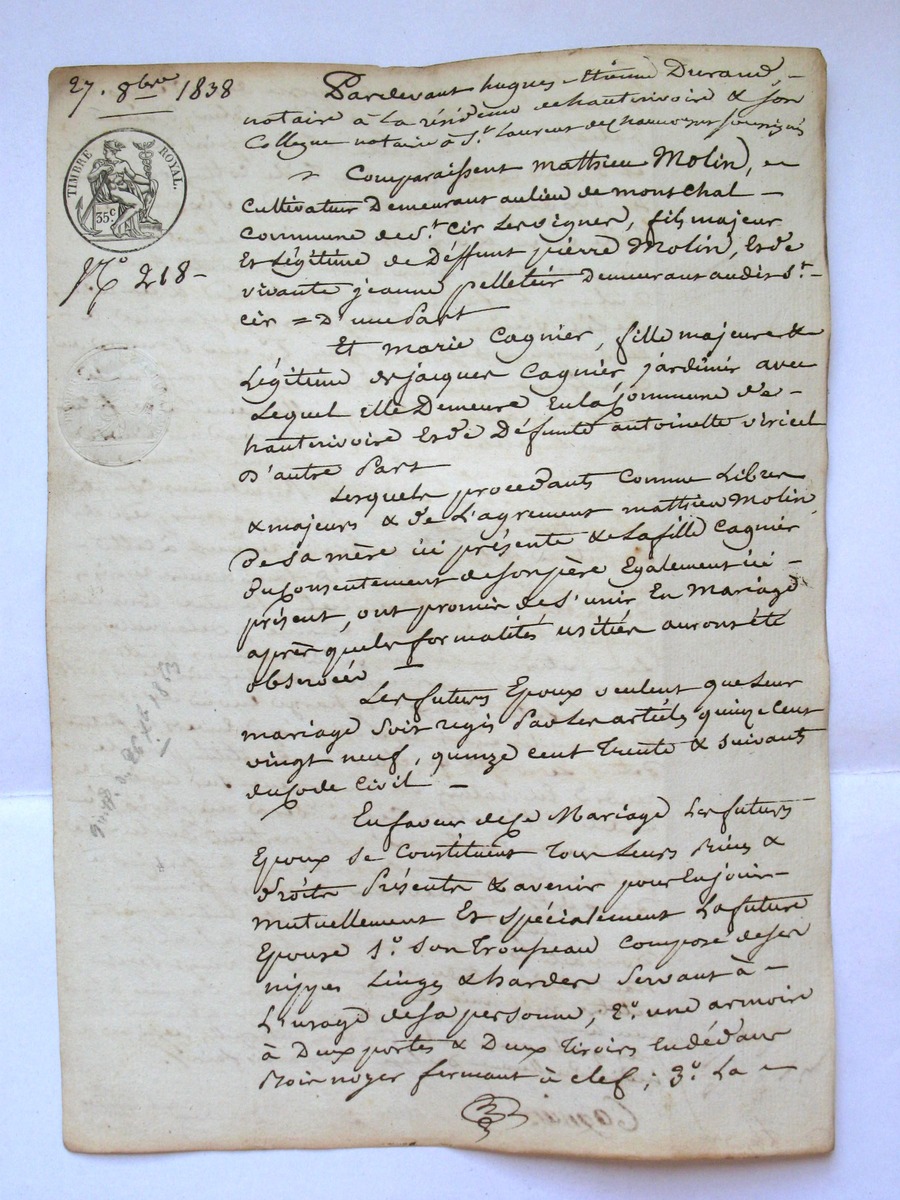 27. 8bre 1838
TIMBRE ROYAL.
35c
N.o 218 -
Pardevant hugues Etienne Durand, -
notaire à La résidence de hauterivoire & son
Collegue notaire à St. Laurent de chamousset soussignés
Comparaissent mathieu Molin,
Cultivateur Demeurant au lieu de montchal -
Commune de St. Cir Les vignes, fils majeur
Et Légitime de Déffunt pierre Molin, Et de
vivante jeanne pelletier Demeurant audit St. -
cir = D'une Part
Et marie Cagnier, fille majeure &
Légitime de jacques Cagnier jardinier avec
Lequel elle Demeure En la Commune de -
hauterivoire Et de Défunte antoinette viricel
D'autre Part
Lesquels procedants Comme Libres
& majeurs & de L'agrement mathieu Molin
De Sa mère ici présente & La fille Cagnier
du Consentement de son père Egalement ici -
présent, ont promis de S'unir En Mariage
après que les formalités usitées auront été
observées -
Les futurs Epoux veulent que Leur
mariage Soit regis Par Les articles quinze cent
vingt neuf, quinze cent Trente & suivants
du Code Civil -
En faveur de ce Mariage Les futurs
Epoux Se Constituent Tous Leurs Biens &
droits Présents & avenir pour En jouir
mutuellement Et spécialement La future
Epouse 1.o Son Trousseau Composé de ses
nippes Linges & hardes Servant à -
L'usage de sa personne; 2.o une armoire
à Deux portes & Deux Tiroirs En dédans
Bois noyer fermant à clef; 3.o La -